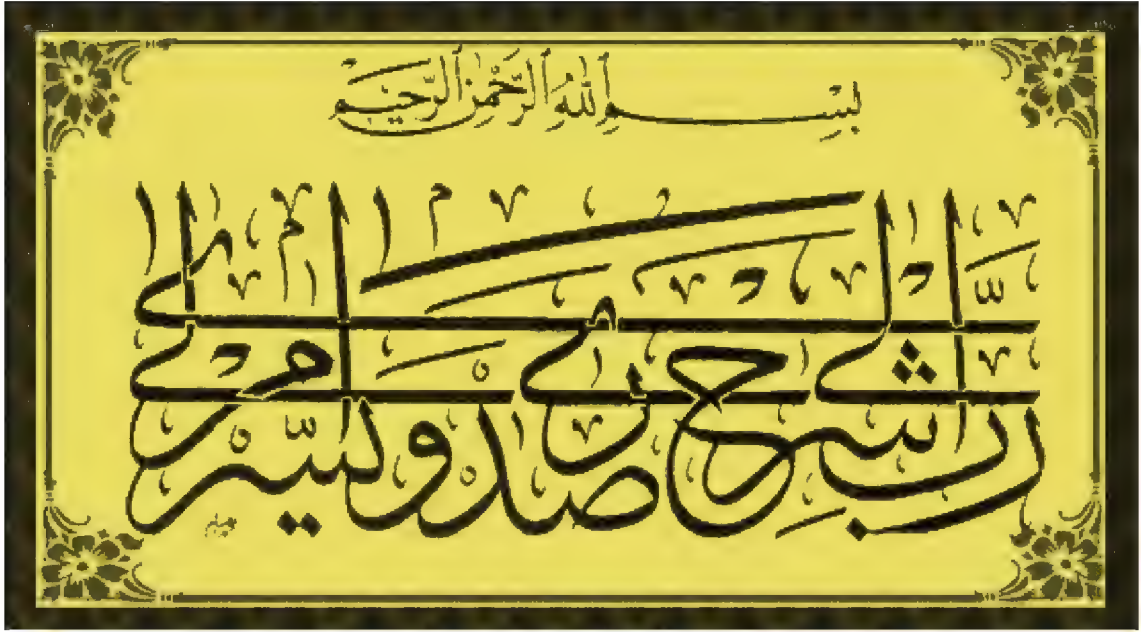 بِسْمِ اللهِ الرَّحْمٰنِ الرَّحِيْمِ
رَبِّ اشْرَحْ لِي صَدْرِي وَيَسِّرْ لِي أَمْرِي